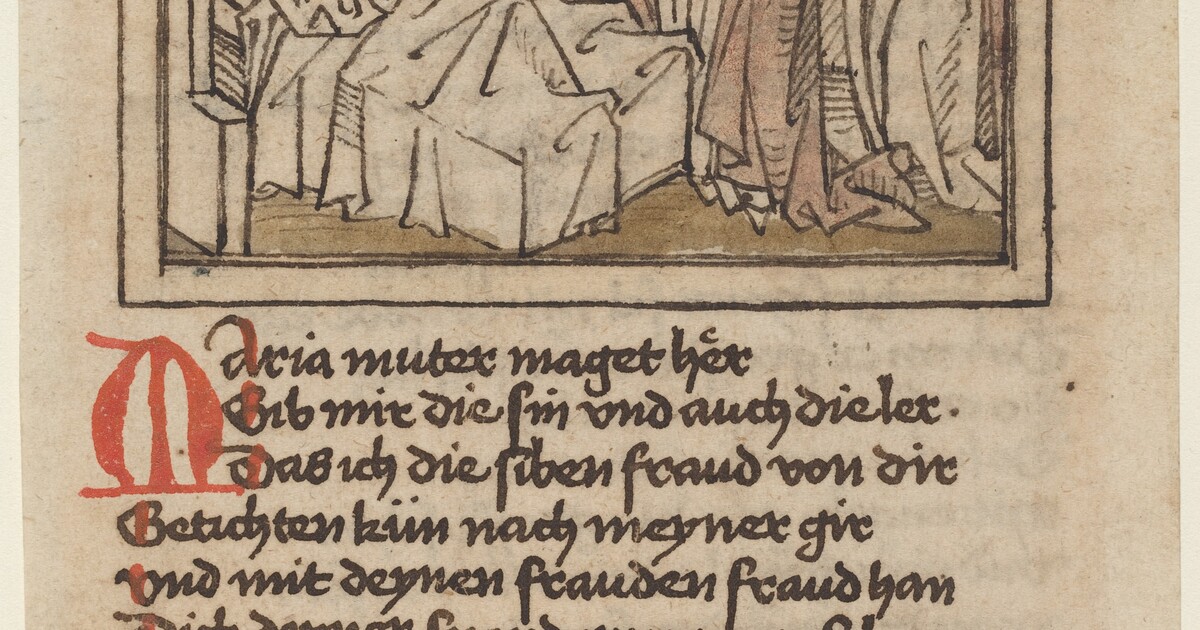 Maria muter maget hër
Gib mir die sin vnd auch die ler.
Das ich die siben fraud von dir
Getichten kün nach meyner gir
vnd mit deynen frauden fraud han
Dich deyner